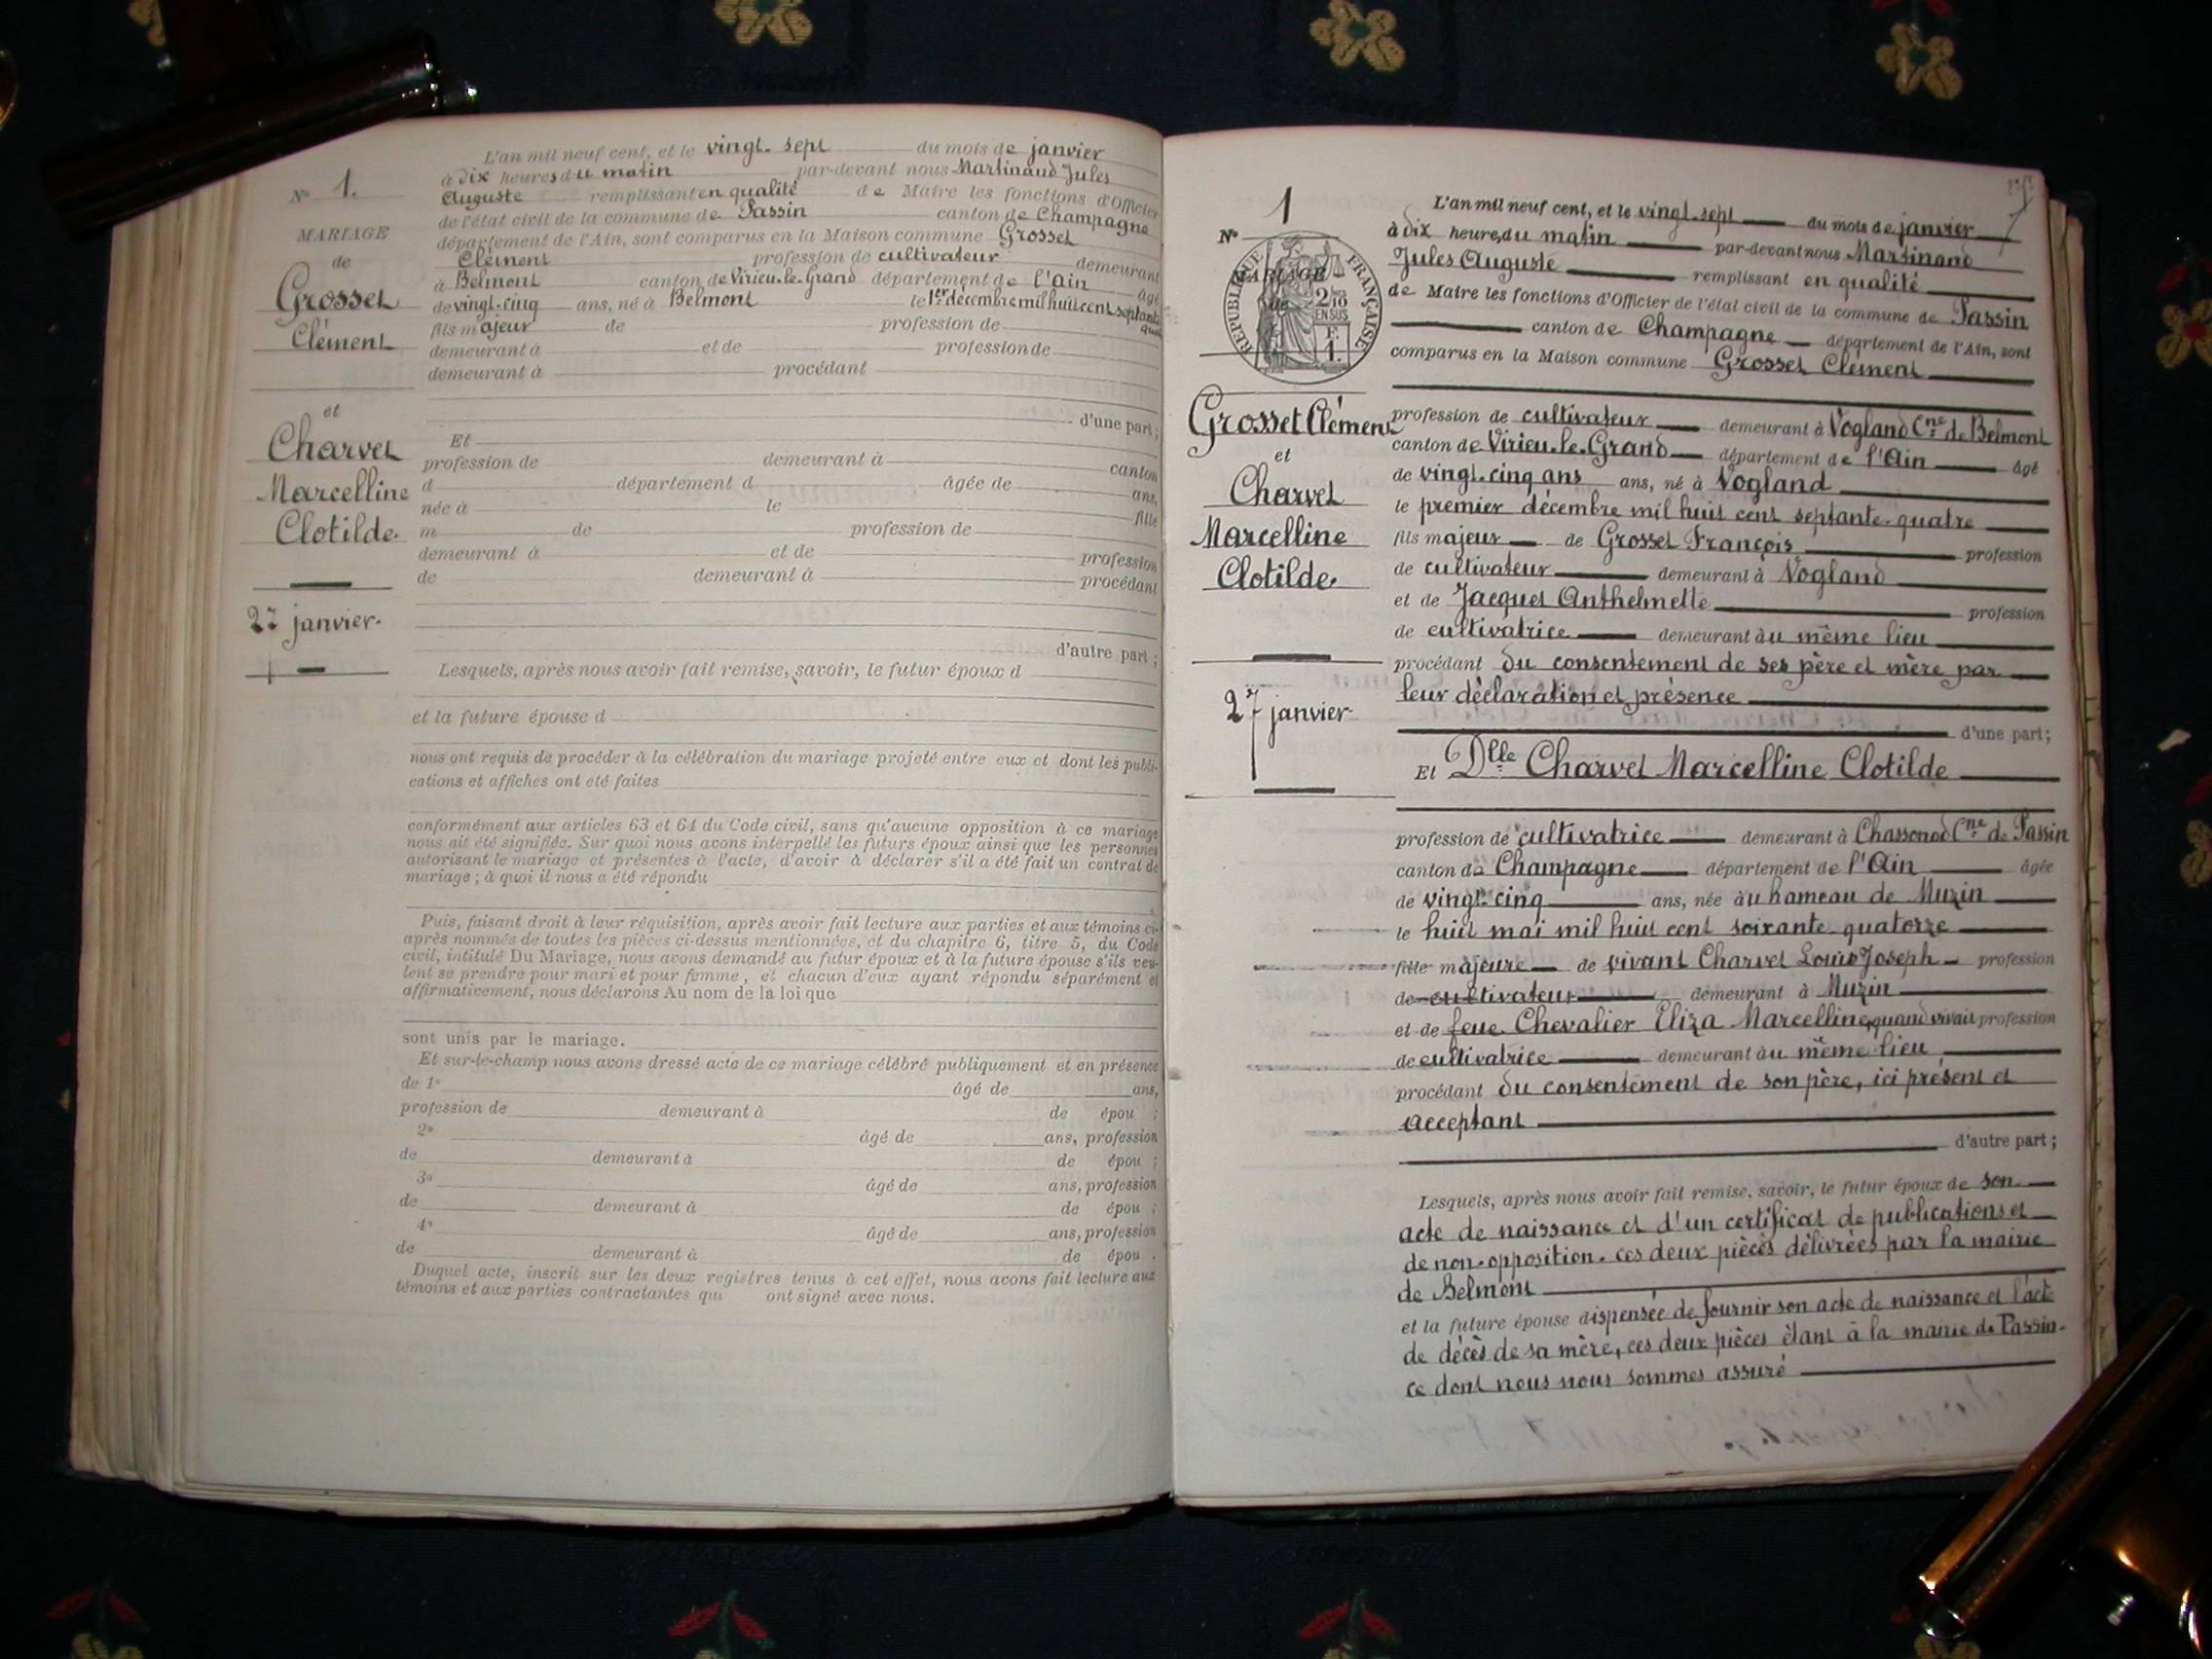 L'an mil neuf cent, et le vingt-sept du mois de janvier
à dix heures du matin par-devant nous Martinand Jules
Auguste remplissant en qualité de Maire les fonctions d'Officier
de l'état civil de la commune de Passin canton de Champagne
département de l'Ain, sont comparus en la Maison commune Grosset
Clément profession de cultivateur demeurant
à Belmont canton de Virieu-le-Grand département de l'Ain âgé
de vingt-cinq ans, né à Belmont le 1er décembre mil huit cent septante
fils majeur de profession de
demeurant à et de profession de
demeurant à procédant
d'une part;
Et
profession de demeurant à canton
d département d âgée de ans,
née à le fille
m de profession de
demeurant à et de profession
de demeurant à procédant
d'autre part;
Lesquels, après nous avoir fait remise, savoir, le futur époux d
et la future épouse d
nous ont requis de procéder à la célébration du mariage projeté entre eux et dont les publi-
cations et affiches ont été faites
conformément aux articles 63 et 64 du Code civil, sans qu'aucune opposition à ce mariage
nous ait été signifiée. Sur quoi nous avons interpellé les futurs époux ainsi que les personnes
autorisant le mariage et présentes à l'acte, d'avoir à déclarer s'il a été fait un contrat de
mariage; à quoi il nous a été répondu
Puis, faisant droit à leur réquisition, après avoir fait lecture aux parties et aux témoins ci-
après nommés de toutes les pièces ci-dessus mentionnées, et du chapitre 6, titre 5, du Code
civil, intitulé Du Mariage, nous avons demandé au futur époux et à la future épouse s'ils veu-
lent se prendre pour mari et pour femme, et chacun d'eux ayant répondu séparément et
affirmativement, nous déclarons Au nom de la loi que
sont unis par le mariage.
Et sur-le-champ nous avons dressé acte de ce mariage célébré publiquement et en présence
de 1° âgé de ans,
profession de demeurant à de épou ;
2° âgé de ans, profession
de demeurant à de épou ;
3° âgé de ans, profession
de demeurant à de épou ;
4° âgé de ans, profession
de demeurant à de épou .
Duquel acte, inscrit sur les deux registres tenus à cet effet, nous avons fait lecture aux
témoins et aux parties contractantes qui ont signé avec nous.
N° 1.
MARIAGE
de
Grosset
Clément
et
Charvet
Marcelline
Clotilde.
27 janvier.
1
N°
MARIAGE
de
RÉPUBLIQUE FRANÇAISE
2/10
EN SUS
F.
1.
Grosset Clément
et
Charvet
Marcelline
Clotilde.
27 janvier.
L'an mil neuf cent, et le vingt-sept du mois de janvier
à dix heures du matin par-devant nous Martinand
Jules Auguste remplissant en qualité
de Maire les fonctions d'Officier de l'état civil de la commune de Passin
canton de Champagne département de l'Ain, sont
comparus en la Maison commune Grosset Clément
profession de cultivateur demeurant à Vogland Cne de Belmont
canton de Virieu-le-Grand département de l'Ain âgé
de vingt-cinq ans ans, né à Vogland
le premier décembre mil huit cent septante-quatre
fils majeur de Grosset François profession
de cultivateur demeurant à Vogland
et de Jacquet Anthelmette profession
de cultivatrice demeurant àu même lieu
procédant du consentement de ses père et mère par
leur déclaration et présence
d'une part;
Et Dlle Charvet Marcelline Clotilde
profession de cultivatrice demeurant à Chassonod Cne de Passin
canton de Champagne département de l'Ain âgée
de vingt-cinq ans, née àu hameau de Muzin
le huit mai mil huit cent soixante-quatorze
fille majeure de vivant Charvet Louis Joseph profession
de cultivateur demeurant à Muzin
et de feue Chevalier Eliza Marcelline, quand vivait profession
de cultivatrice demeurant àu même lieu
procédant du consentement de son père, ici présent et
acceptant
d'autre part;
Lesquels, après nous avoir fait remise, savoir, le futur époux de son
acte de naissance et d'un certificat de publications et
de non-opposition. ces deux pièces délivrées par la mairie
de Belmont
et la future épouse dispensée de fournir son acte de naissance et l'acte
de décès de sa mère, ces deux pièces étant à la mairie de Passin.
ce dont nous nous sommes assuré